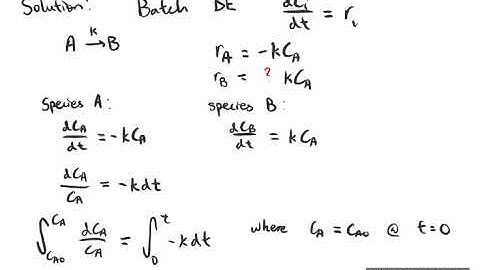 Solution: Batch DE dCi/dt = ri
A →k B
rA = -kCA
rB = ? kCA
Species A: species B:
dCA/dt = -kCA dCB/dt = kCA
dCA/CA = -kdt
∫CA0^CA dCA/CA = ∫0^t -kdt where CA = CA0 @ t=0